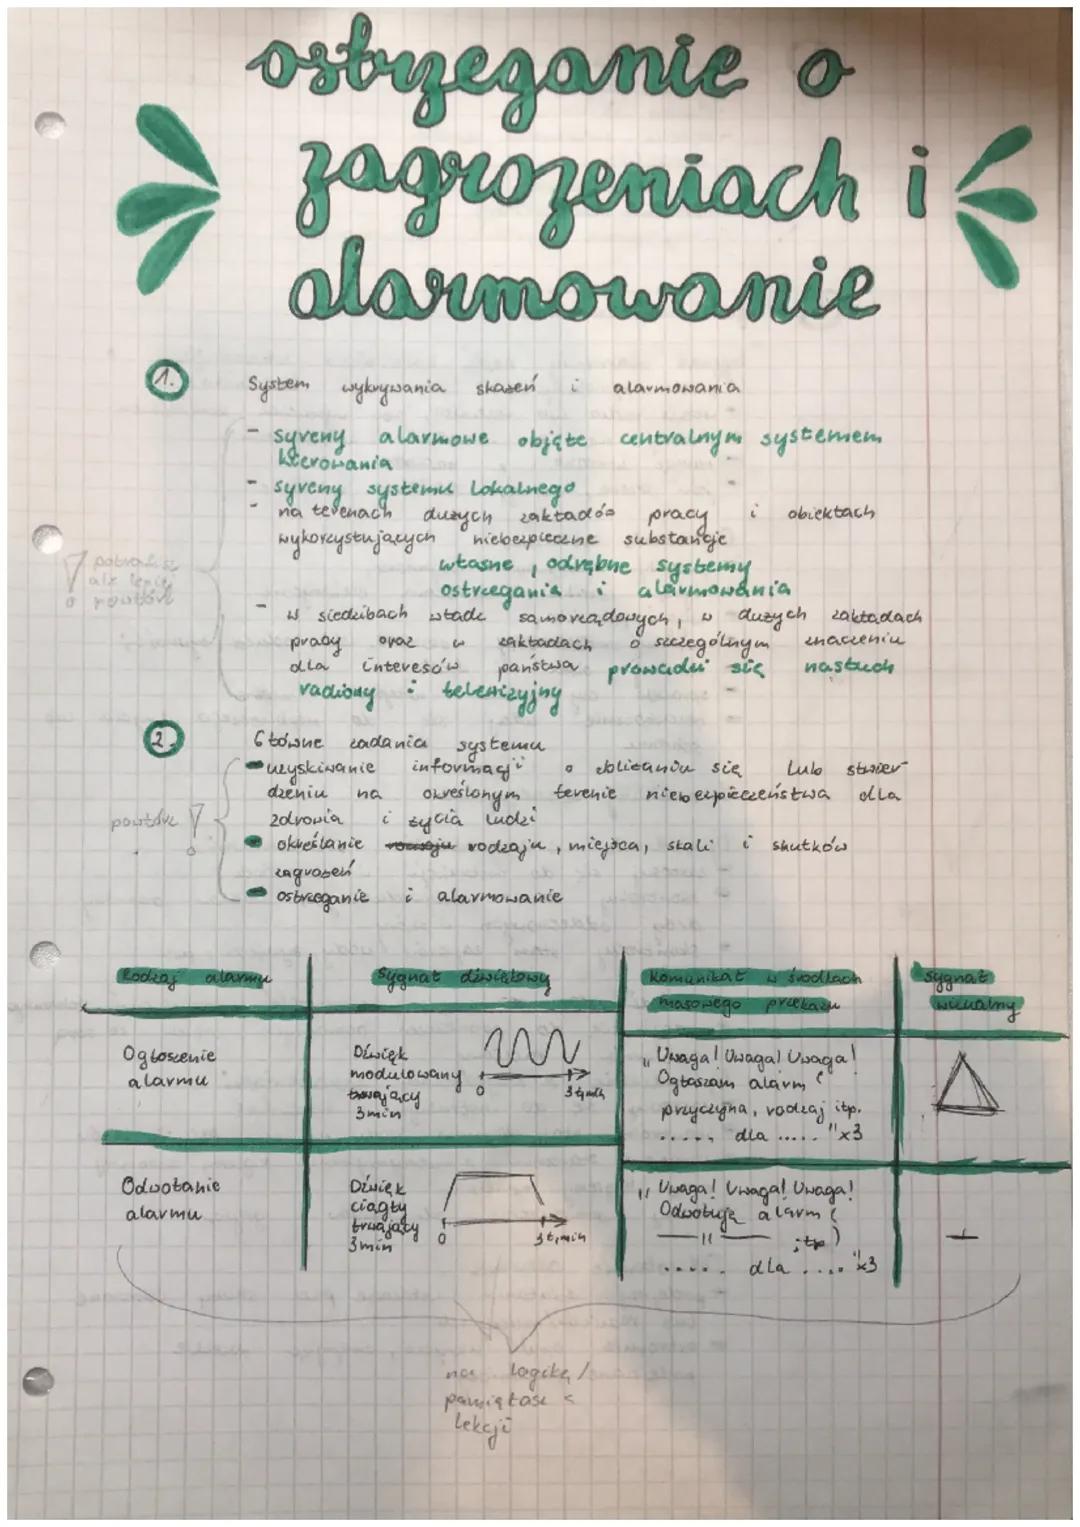 ostrzeganie o
zagrożeniach i
alarmowanie
1. System wykrywania skażeń i alarmowania
- syreny alarmowe objęte centralnym systemem
kierowania
- syreny systemu lokalnego
- na terenach dużych zakładów pracy i obiektach
wykorzystujących niebezpieczne substancje
własne, odrębne systemy
ostrzegania i alarmowania
- w siedzibach władz samorządowych, w dużych zakładach
pracy oraz w zakładach o szczególnym znaczeniu
dla interesów państwa prowadzi się nasłuch
radiowy i telewizyjny
! potrafisz
ale lepiej
powtórz
2. Główne zadania systemu
uzyskiwanie informacji o zbliżaniu się lub stwier
dzeniu na określonym terenie niebezpieczeństwa dla
zdrowia i życia ludzi
określanie rodzaju, miejsca, skali i skutków
zagrożeń
ostrzeganie i alarmowanie
powtórz !
Rodzaj alarmu
Sygnał dźwiękowy
Komunikat w środkach
masowego przekazu
sygnał
wizualny
Ogłoszenie
alarmu
Dźwięk
modulowany
trwający
3min
0 3 t,min
„Uwaga! Uwaga! Uwaga!
Ogłaszam alarm (
przyczyna, rodzaj itp.
..... dla ....." x3
Odwołanie
alarmu
Dźwięk
ciągły
trwający
3min
0 3 t,min
„Uwaga! Uwaga! Uwaga!
Odwołuję alarm (
—— " —— itp)
..... dla ....." x3
—
na logikę /
pamiętasz z
lekcji